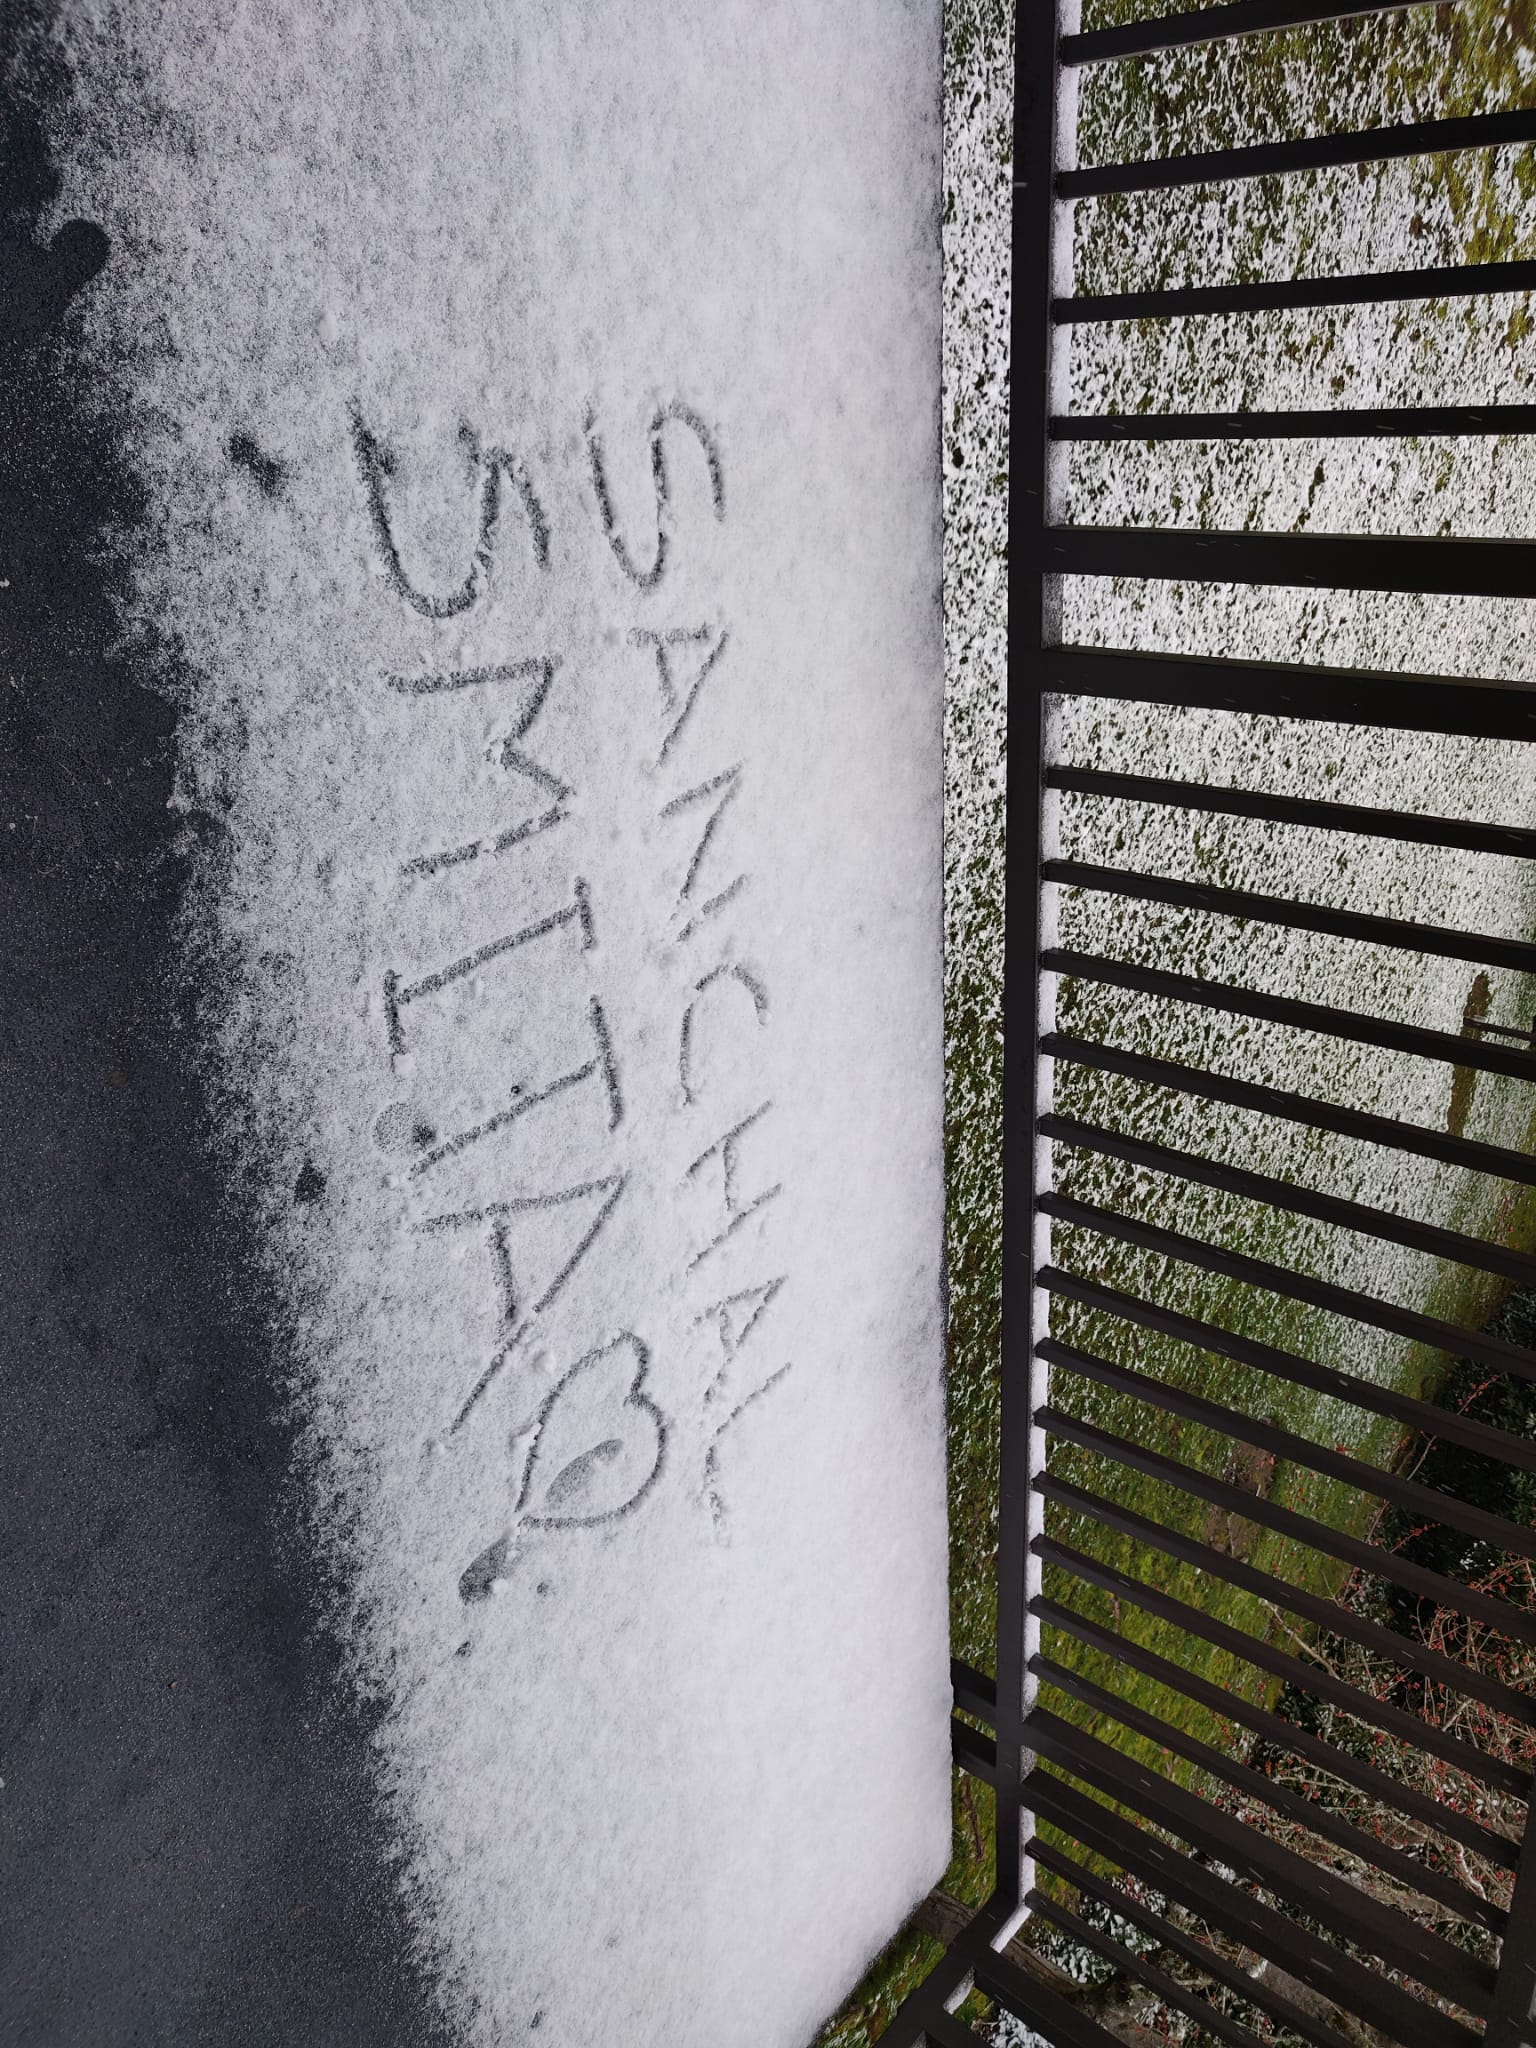 SANCHAL
SMITA